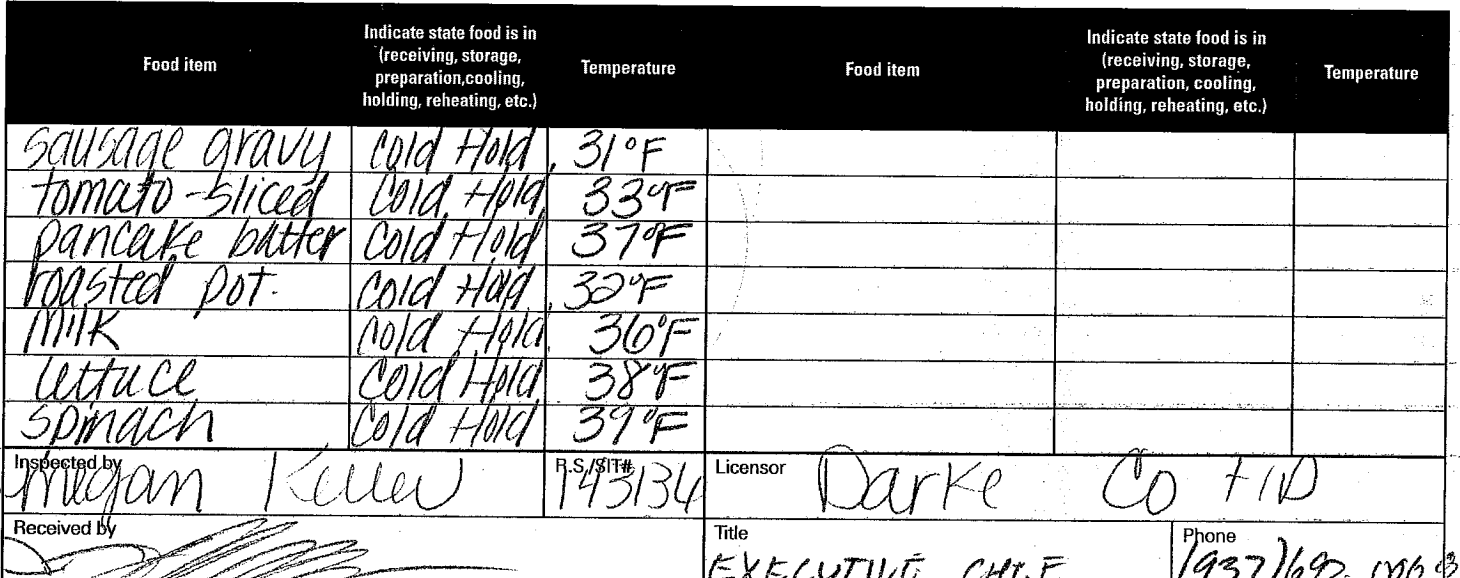 Food item Indicate state food is in (receiving, storage, preparation,cooling, holding, reheating, etc.) Temperature Food item Indicate state food is in (receiving, storage, preparation, cooling, holding, reheating, etc.) Temperature
sausage gravy Cold Hold 31°F
tomato-sliced Cold Hold 33°F
pancake batter Cold Hold 37°F
roasted pot. Cold Hold 32°F
Milk Cold Hold 36°F
lettuce Cold Hold 38°F
spinach Cold Hold 39°F
Inspected by R.S./SIT# Licensor
Megan Keller Darke Co HD
Received by Title Phone
EXECUTIVE (937)692